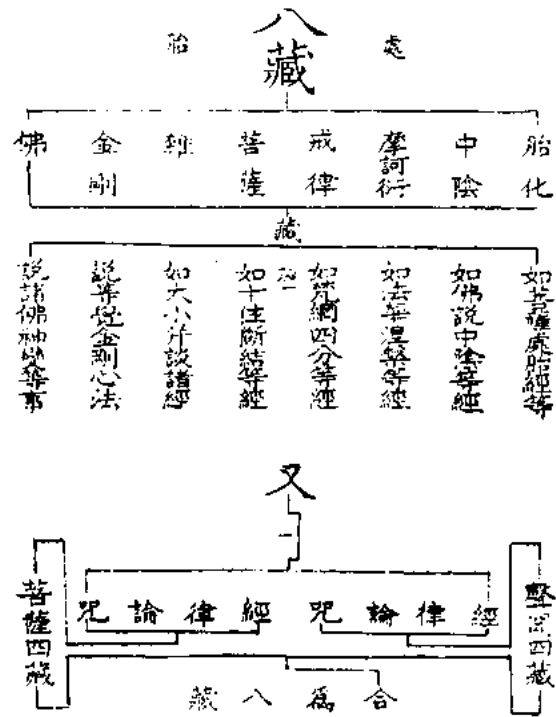 八藏
處胎
胎化
中陰
摩訶衍
戒律
菩薩
雜
金剛
佛
藏
如菩薩處胎經等
如佛說中陰等經
如法華涅槃等經
如梵網四分等經
如十住斷結等經
如大小并談諸經
說等覺金剛心法
說諸佛神變等事
又
聲聞四藏
經律論咒
經律論咒
菩薩四藏
合為八藏